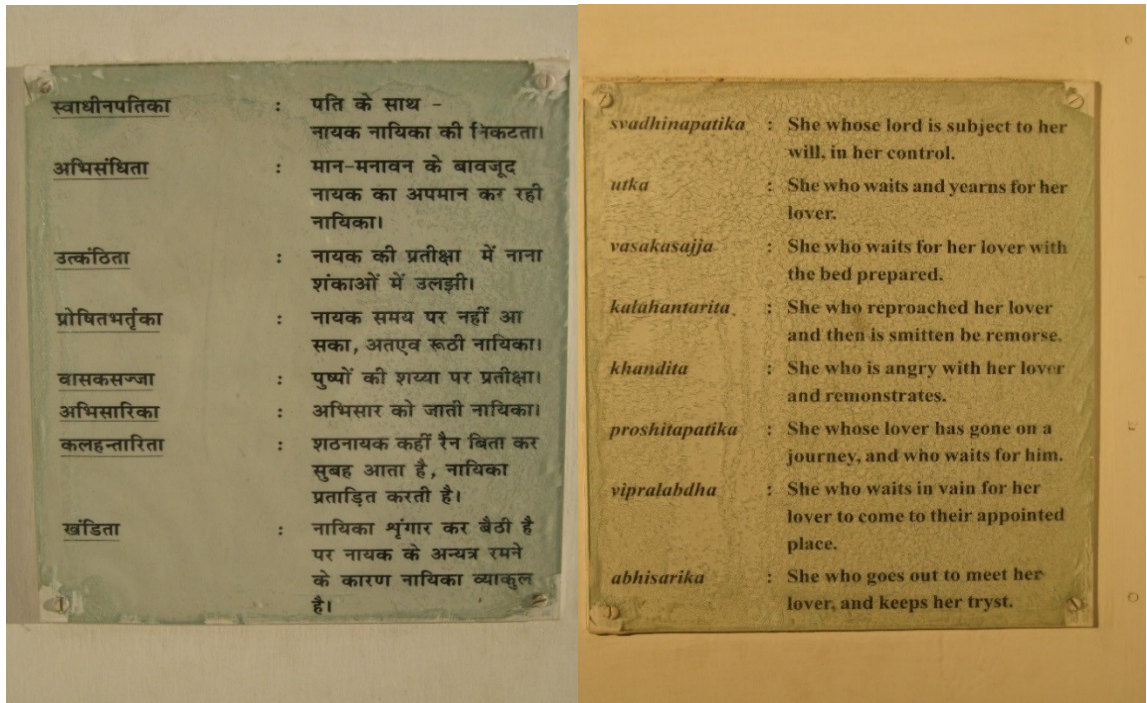 स्वाधीनपतिका : पति के साथ -
नायक नायिका की निकटता।
अभिसंधिता : मान-मनावन के बावजूद
नायक का अपमान कर रही
नायिका।
उत्कंठिता : नायक की प्रतीक्षा में नाना
शंकाओं में उलझी।
प्रोषितभर्तृका : नायक समय पर नहीं आ
सका, अतएव रूठी नायिका।
वासकसज्जा : पुष्पों की शय्या पर प्रतीक्षा।
अभिसारिका : अभिसार को जाती नायिका।
कलहन्तारिता : शठनायक कहीं रैन बिता कर
सुबह आता है, नायिका
प्रताड़ित करती है।
खंडिता : नायिका शृंगार कर बैठी है
पर नायक के अन्यत्र रमने
के कारण नायिका व्याकुल
है।
svadhinapatika : She whose lord is subject to her
will, in her control.
utka : She who waits and yearns for her
lover.
vasakasajja : She who waits for her lover with
the bed prepared.
kalahantarita : She who reproached her lover
and then is smitten be remorse.
khandita : She who is angry with her lover
and remonstrates.
proshitapatika : She whose lover has gone on a
journey, and who waits for him.
vipralabdha : She who waits in vain for her
lover to come to their appointed
place.
abhisarika : She who goes out to meet her
lover, and keeps her tryst.